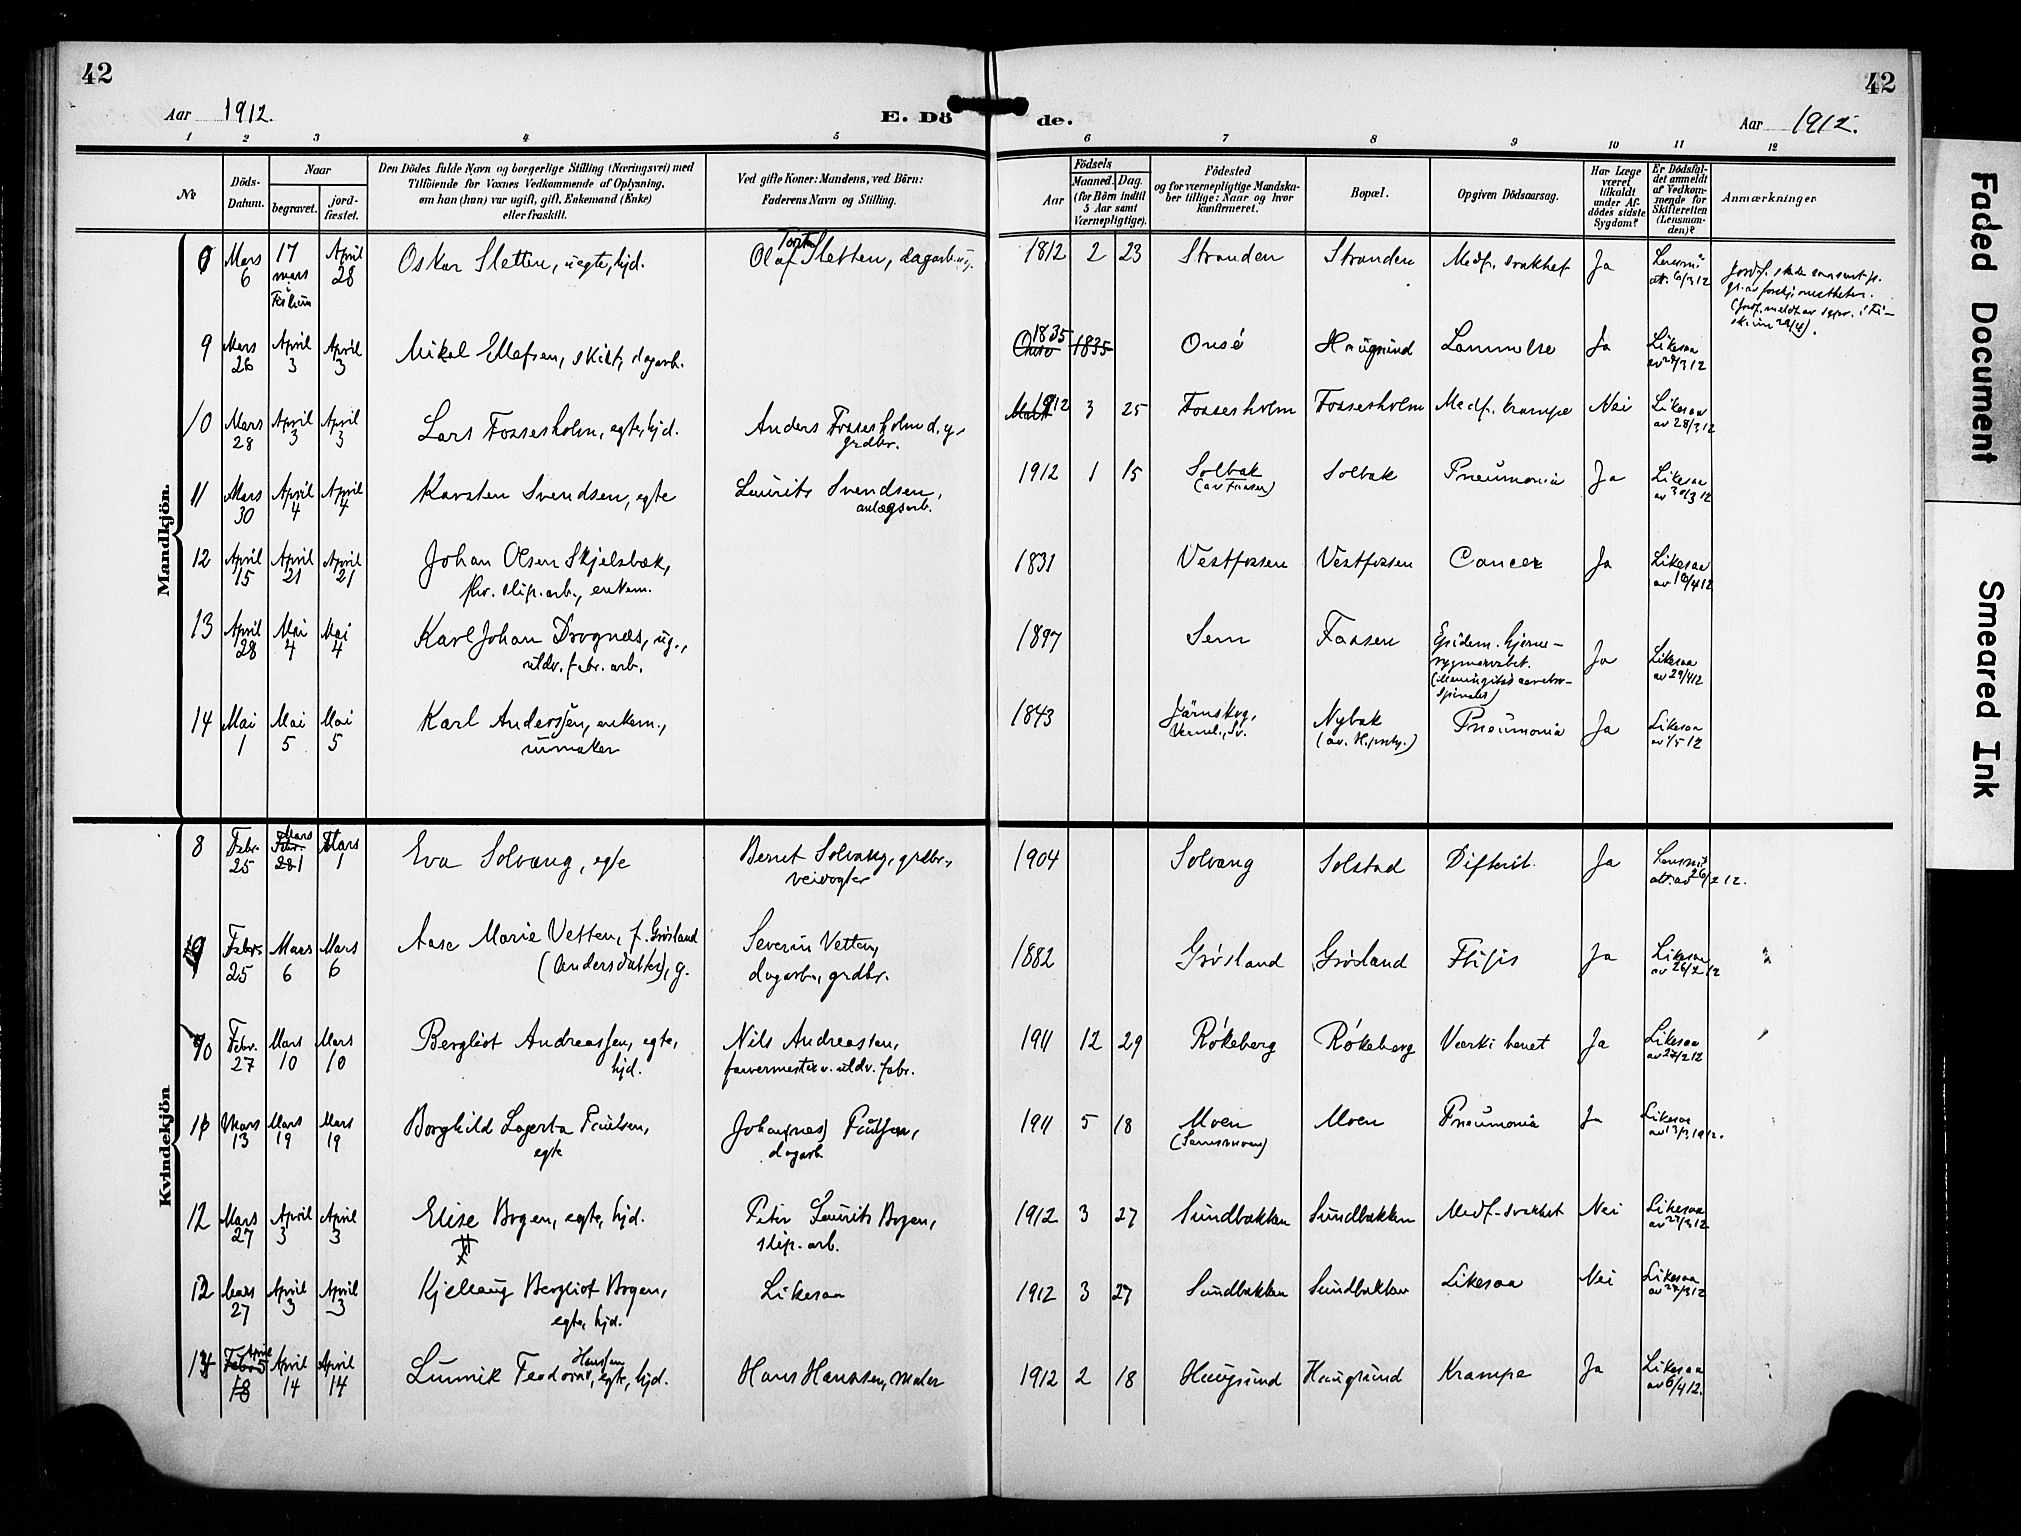 42
42
Aar 1912.
E. Dö de.
Aar 1912.
1 2 3 4 5 6 7 8 9 10 11 12
No
Döds-Datum.
Naar
begravet.
jord-fæstet.
Den Dödes fulde Navn og borgerlige Stilling (Næringsvei) med
Tilföiende for Voxnes Vedkommende af Oplysning,
om han (hun) var ugift, gift, Enkemand (Enke)
eller fraskilt.
Ved gifte Koner: Mandens, ved Börn:
Faderens Navn og Stilling.
Födsels
Aar
Maaned. Dag.
(for Börn indtil
5 Aar samt
Værnepligtige).
Födested
og for værnepligtige Mandska-
ber tillige: Naar og hvor
konfirmeret.
Bopæl.
Opgiven Dödsaarsag.
Har Læge
været
tilkaldt
under Af-
dödes sidste
Sygdom?
Er Dödsfal-
det anmeldt
af Vedkom-
mende for
Skifteretten
(Lensman-
den)?
Anmærkninger
Mandkjön.
Mars 6 17 mars April 28 Oskar Sletten, uegte, hjd. Olaf Sletten, dagarb. 1812 2 23 Stranden Stranden Medf. svakhet Ja
9 Mars 26 April 3 April 3 Mikal Ellefsen, skilt, dagarb. 1835 Onsö 1835 Onsö Haugsund Lammelse Ja Likesaa
10 Mars 28 April 3 April 3 Lars Fossesholm, egte, hjd. Anders Fossesholm d.y.
grdbr. 1912 3 25 Fossesholm Fossesholm Medf. krampe Nei Likesaa av 28/3 12
11 Mars 30 April 4 April 4 Karsten Svendsen, egte Laurits Svendsen,
anlægsarb. 1912 1 15 Solbak Solbak Pneumonia Ja Likesaa av 30/3 12
12 April 15 April 21 April 21 Johan Olsen Skjelsbæk,
slip. arb., enkem. 1831 Vestfossen Vestfossen Cancer Ja Likesaa av 16/4 12
13 April 28 Mai 4 Mai 4 Karl Johan Drognæs, ug.,
uldv. fabr. arb. 1897 Sem Faasen Epidem. hjerne- Ja Likesaa av 29/4 12
14 Mai 1 Mai 5 Mai 5 Karl Anderssen, enkem.,
urmaker 1843 Järnskog,
Verml., Sv. Nybak Pneumonia Ja Likesaa av 1/5 12
Kvindekjön
8 Febr. 25 Mars Febr. 28 1 Mars 1 Eva Solvang, egte Bernt Solvang, grdbr.,
veivogter 1904 Solvang Solstad Difterit. Ja Lensm. att. av 26/2 12.
9 Febr. 25 Mars 6 Mars 6 Aase Marie Vetten, f. Grösland
(Andersdatter), g. Severin Vetten,
dagarb., grdbr. 1882 Grösland Grösland Ftisis Ja Likesaa av 26/2 12
10 Febr. 27 Mars 10 Mars 10 Bergliot Andreassen, egte,
hjd. Nils Andreassen,
farvermester v. uldv. fabr. 1911 12 29 Rökeberg Rökeberg Værk i benet Ja Likesaa av 27/2 12
11 Mars 13 Mars 19 Mars 19 Borghild Lagerta Paulsen,
egte Johan(nes) Paulsen,
dagarb 1911 5 18 Moen Moen Pneumonia Ja Likesaa av 13/3 1912.
12 Mars 27 April 3 April 3 Elise Bogen, egte, hjd. Peter Laurits Bogen,
slip. arb. 1912 3 27 Sundbakken Sundbakken Medf. svakhet Nei Likesaa av 27/3 12
Mars 27 April 3 April 3 Kjellaug Bergliot Bogen,
egte, hjd. Likesaa 1912 3 27 Sundbakken Sundbakken Likesaa Nei Likesaa av 27/3 12
14 April 5 Febr. 18 April 14 April 14 Hanssen, egte, hjd. Hans Hanssen, maler 1912 2 18 Haugsund Haugsund Krampe Ja Likesaa av 6/4 12.
Faded Document
Smeared Ink